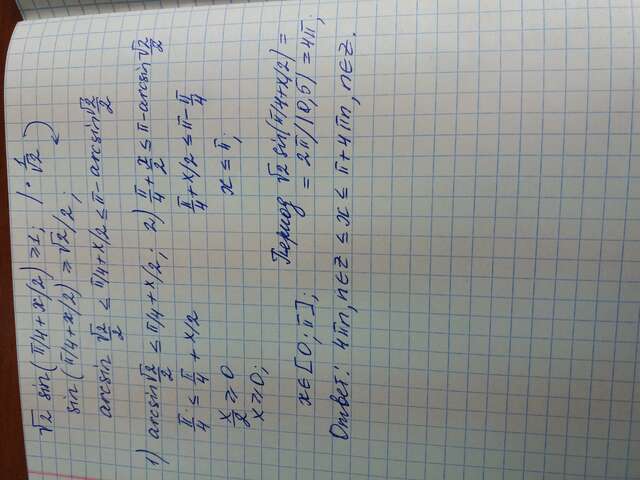 √2 sin(π/4+x/2) ≥1; / · 1/√2
sin(π/4+x/2) ≥ √2/2;
arcsin √2/2 ≤ π/4+x/2 ≤ π-arcsin √2/2
1) arcsin √2/2 ≤ π/4+x/2; 2) π/4 + x/2 ≤ π-arcsin √2/2
π/4 ≤ π/4 + x/2 π/4 + x/2 ≤ π - π/4
x/2 ≥ 0 x ≤ π;
x ≥ 0;
Период √2 sin(π/4+x/2) =
x∈[0;π]; = 2π/(0,5) = 4π;
Ответ: 4πn, n∈Z ≤ x ≤ π+4πn, n∈Z.